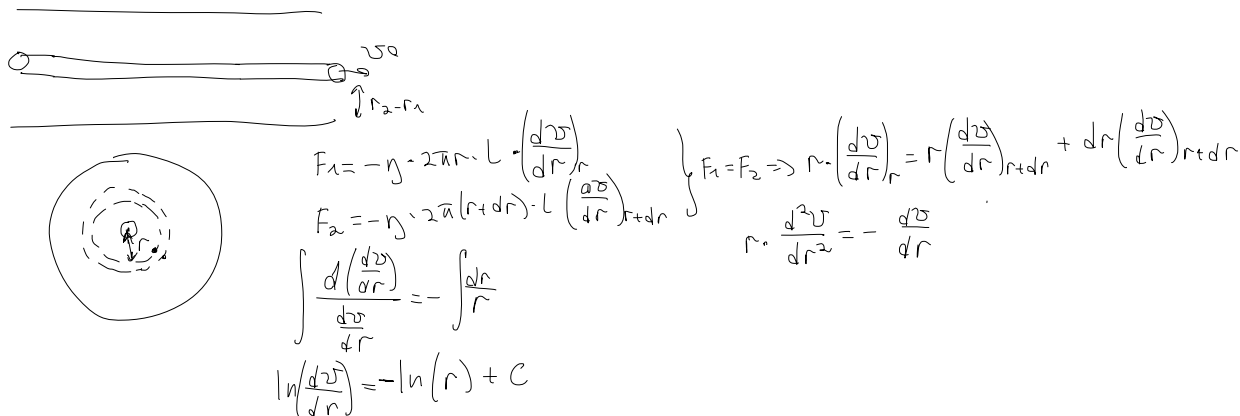 v₀
r₂-r₁
F₁ = -η · 2πr · L · (dv/dr)_r
F₂ = -η · 2π(r+dr) · L (dv/dr)_{r+dr}
} F₁ = F₂ => r · (dv/dr)_r = r (dv/dr)_{r+dr} + dr (dv/dr)_{r+dr}
r · d²v/dr² = - dv/dr
r
∫ d(dv/dr) / (dv/dr) = - ∫ dr/r
ln(dv/dr) = -ln(r) + C